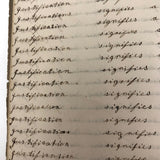 Justifications
Justification signifies
Justification signifies
Justification signifies
Justification signifies
Justification signifies
Justification signifies
Justification signifies
Justification signifies
Justification signifies
Justification signifies
Justification signifies
Justification signifies